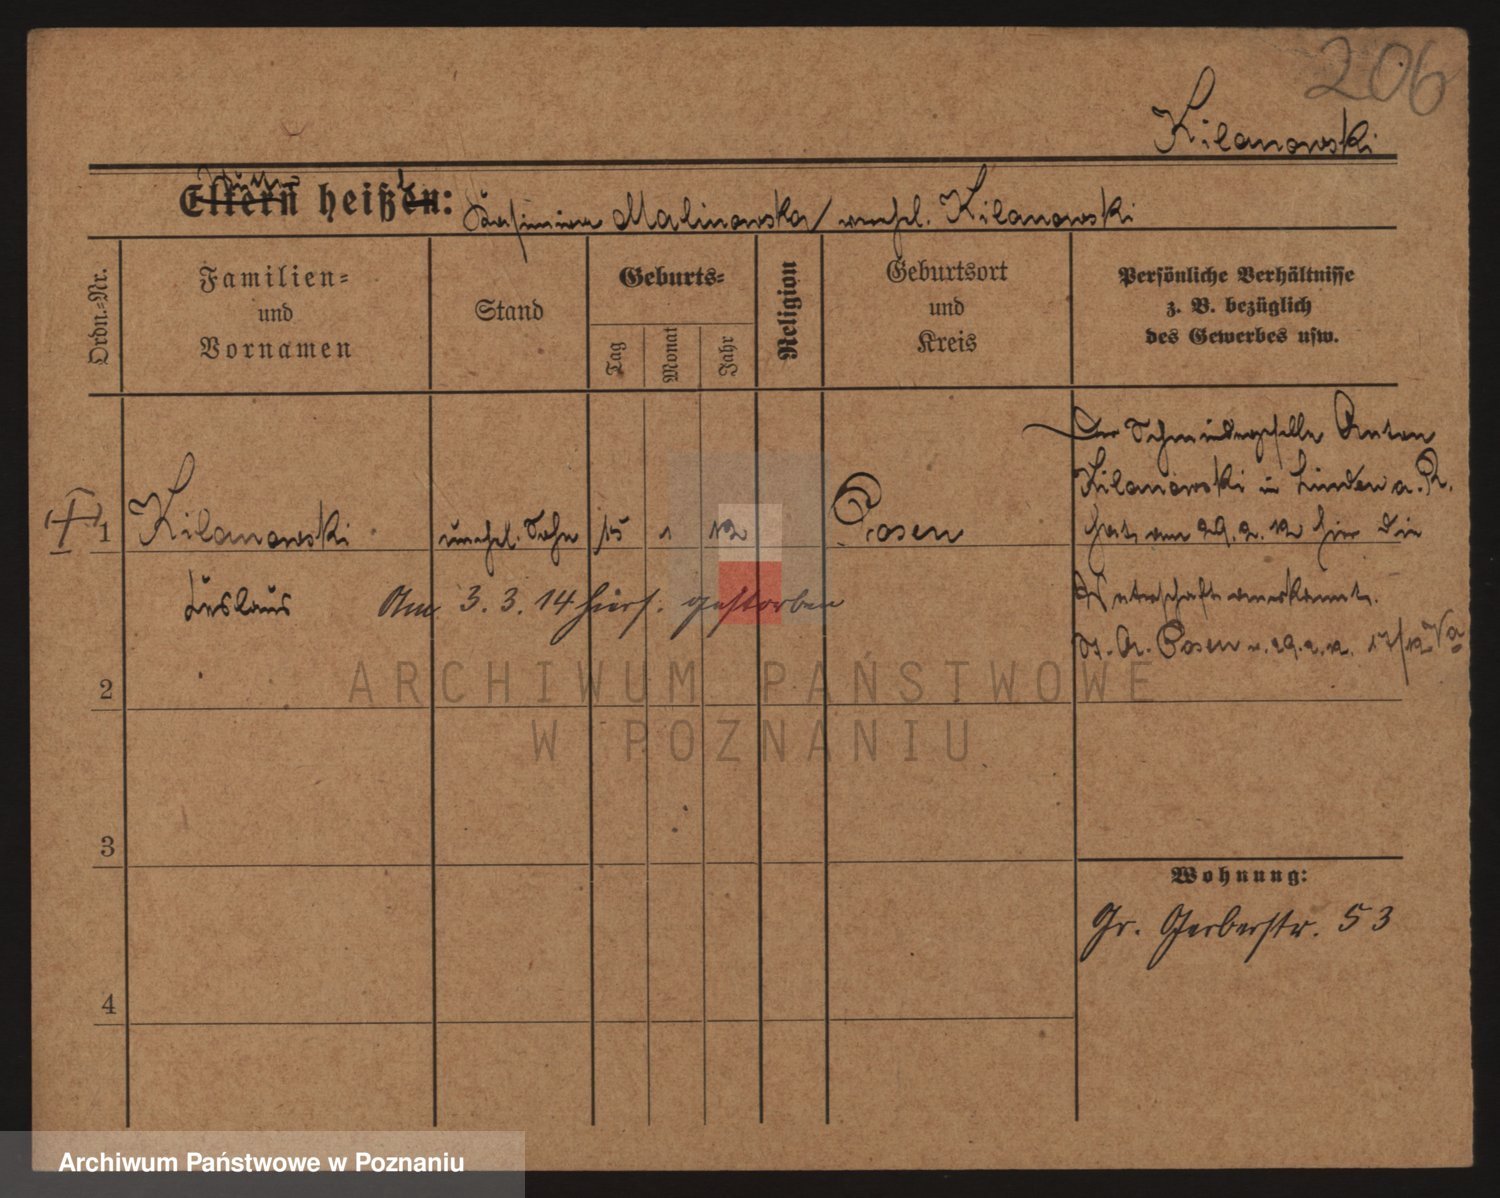 206
Kilanowski
Mutter
Eltern heißen:
Kasimira Malinowska / unehel. Kilanowski
Ordn.-Nr.
Familien-
und
Vornamen
Stand
Geburts-
Tag
Monat
Jahr
Religion
Geburtsort
und
Kreis
Persönliche Verhältnisse
z. B. bezüglich
des Gewerbes usw.
1
Kilanowski
unehel. Sohn
15
1
12
Posen
Der Schmiedegeselle Anton
Kilanowski in Linden a. R.
hat am 29. 2. 12 hier die
Vaterschaft anerkannt.
St. A. Posen v. 29. 2. 12. 17/12 Va
Am 3. 3. 14 hiers. gestorben
2
3
4
Wohnung:
Gr. Gerberstr. 53
ARCHIWUM PAŃSTWOWE
W POZNANIU
Archiwum Państwowe w Poznaniu